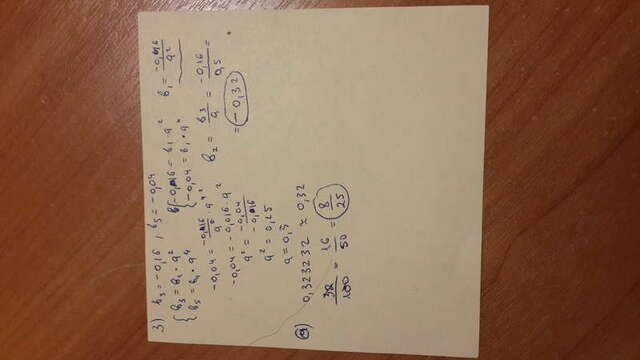 3) в₃ = -0,16 , в₅ = -0,04
{ в₃ = в₁ · q²
в₅ = в₁ · q⁴
{ -0,016 = в₁ · q²
-0,04 = в₁ · q⁴
в₁ = -0,016 / q²
-0,04 = -0,016 / q² · q⁴ ²
-0,04 = -0,016 · q²
q² = -0,04 / -0,016
q² = 0,25
q = 0,5
в₂ = в₃ / q = -0,16 / 0,5 =
= -0,32
4) 0,323232 ≈ 0,32
32/100 = 16/50 = 8/25